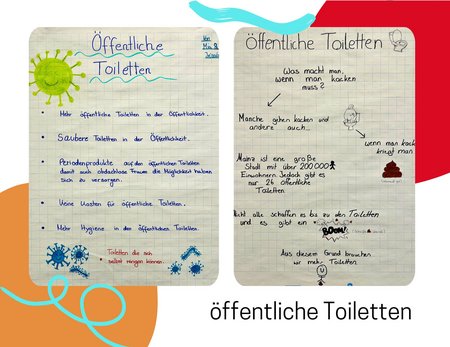 Öffentliche
Toiletten
Von
Mehr öffentliche Toiletten in der Öffentlichkeit.
Saubere Toiletten in der Öffentlichkeit.
Periodenprodukte auf den öffentlichen Toiletten
damit auch obdachlose Frauen die Möglichkeit haben
sich zu versorgen.
Keine Kosten für öffentliche Toiletten.
Mehr Hygiene in der öffentlichen Toiletten.
Toiletten die sich
selbst reinigen können.
Öffentliche Toiletten
Was macht man,
wenn man kacken
muss?
Manche gehen kacken und
andere auch...
wenn man kackt
kriegt man
Mainz ist eine große
Stadt mit über 200000
Einwohnern. Jedoch gibt es
nur 26 Öffentliche
Toiletten.
Nicht alle schaffen es bis zu den Toiletten
und es gibt ein BOOM!
Aus diesem Grund brauchen
wir mehr Toiletten.
öffentliche Toiletten